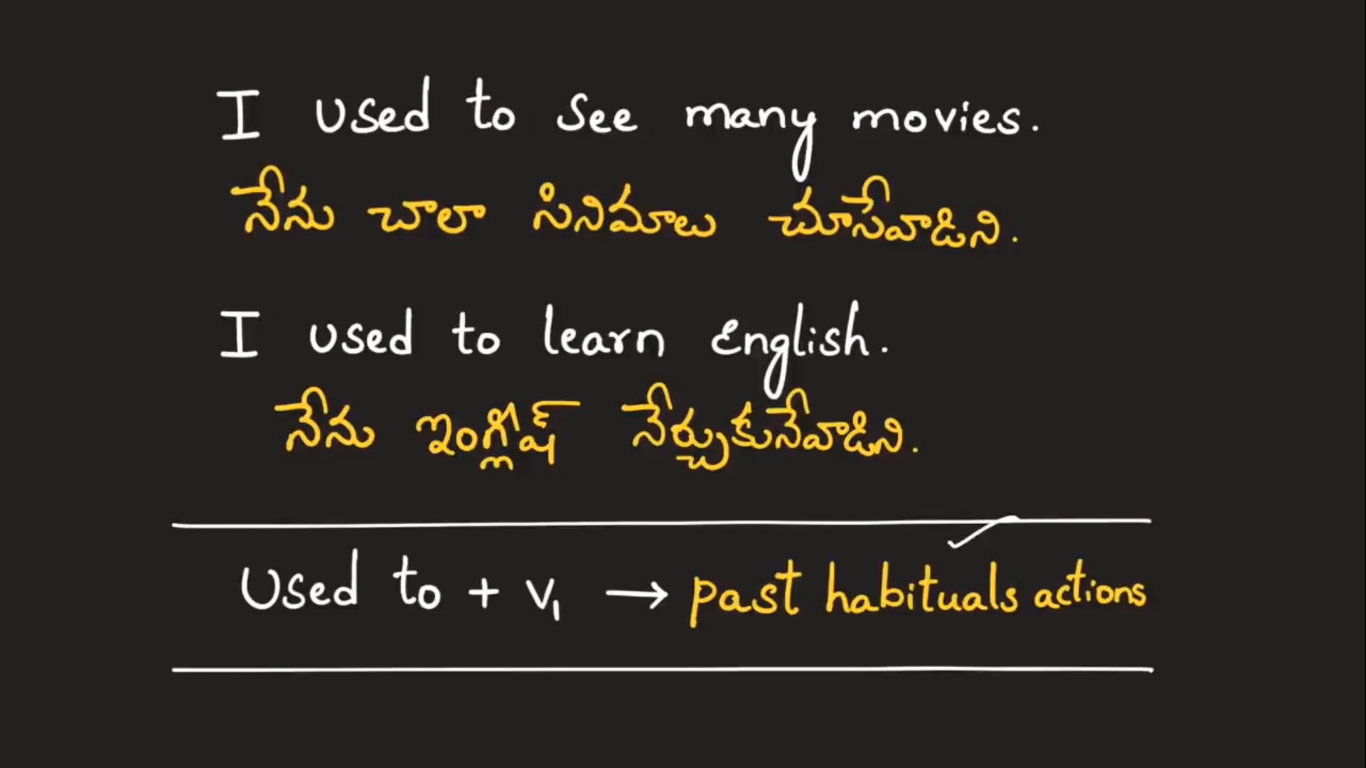 I used to see many movies.
నేను చాలా సినిమాలు చూసేవాడిని.
I used to learn English.
నేను ఇంగ్లీష్ నేర్చుకునేవాడిని.
Used to + V₁ → past habituals actions